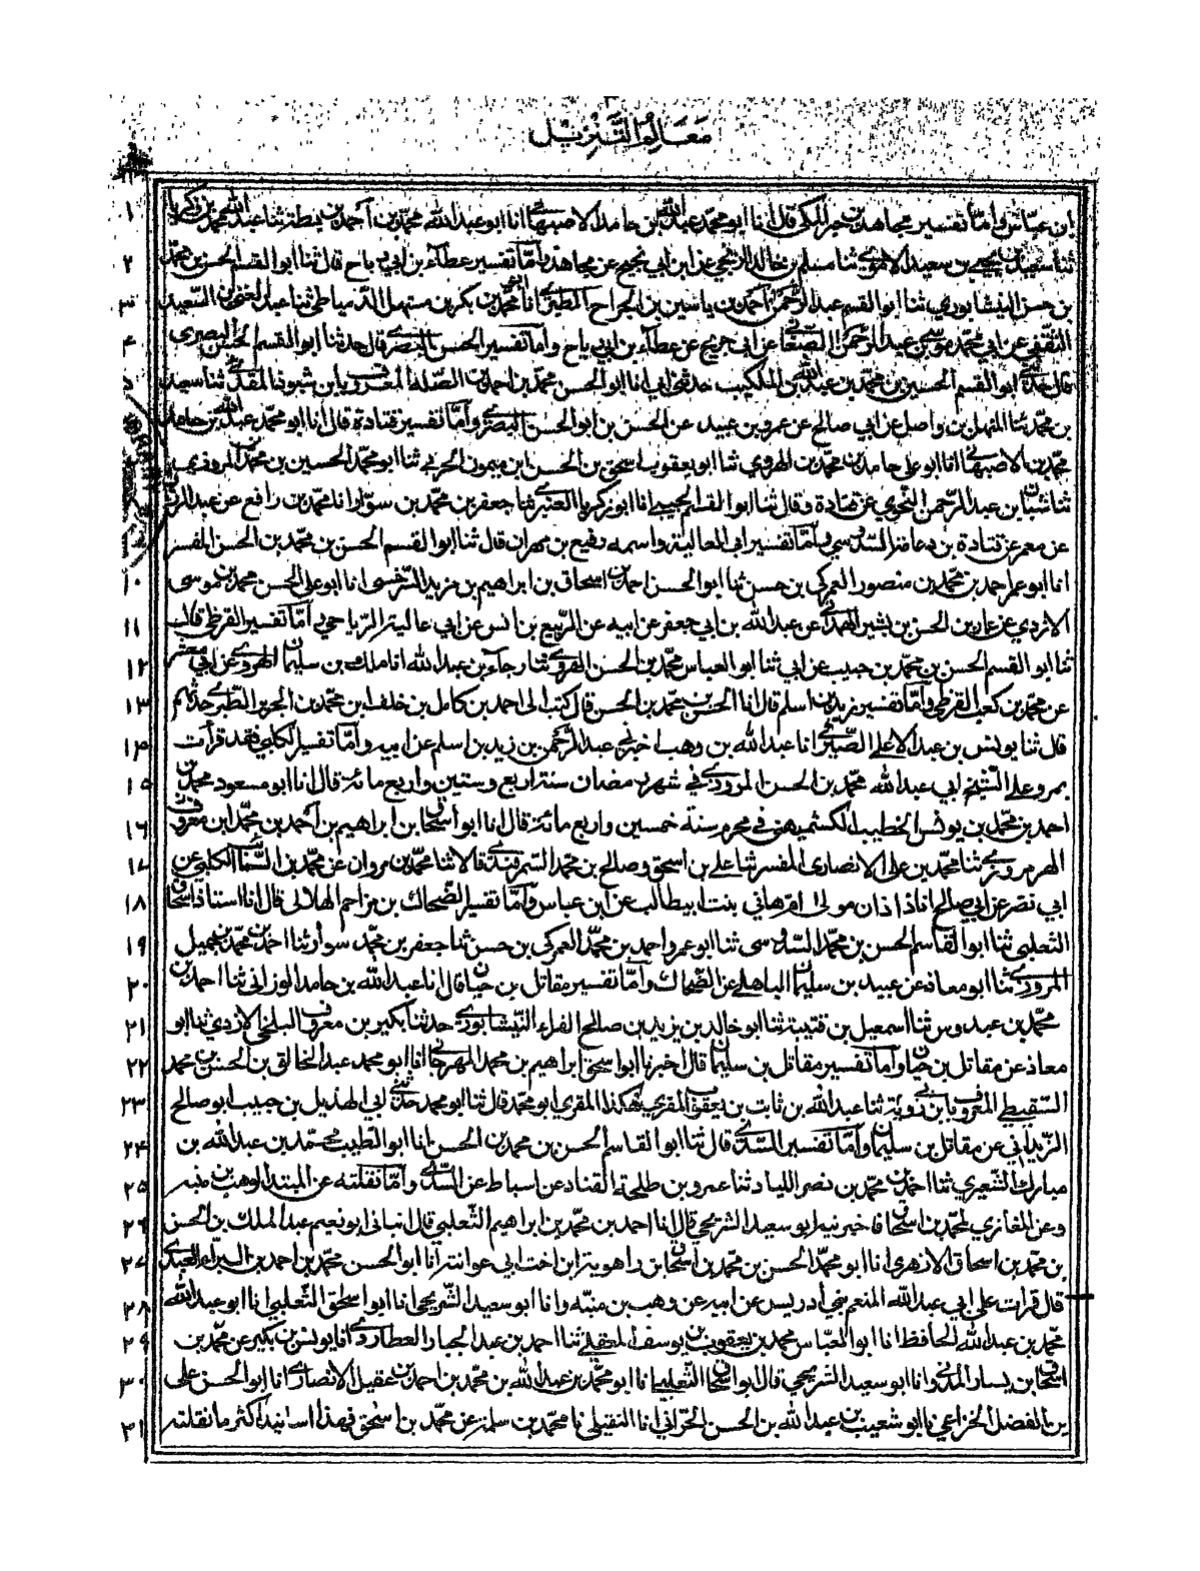 مَعَالِمُ التَّنْزِيْل
١ ابن عباس واما تفسير مجاهد بن جبر المكي قال انا ابو محمد عبدالله بن حامد الاصبهاني انا ابو عبدالله محمد بن احمد بن بطة ثنا عبدالله بن محمد بن زكريا
٢ ثنا سعيد بن يحيى بن سعيد الاموي ثنا مسلم بن خالد الزنجي عن ابن ابي نجيح عن مجاهد واما تفسير عطاء بن ابي رباح قال ثنا ابو القسم الحسن بن محمد
٣ بن حسن النيشابوري ثنا ابو القسم عبد الرحمن احمد بن ياسين بن الجراح الطبري انا ابو محمد بن بكر بن مستهل الدمياطي ثنا عبد الغني بن السعيد
٤ الثقفي عن ابي محمد موسى بن عبد الرحمن الصنعاني عن ابن جريج عن عطاء بن ابي رباح واما تفسير الحسن البصري قال حدثنا ابو القسم الحسن البصري
٥ قال حدثني ابو القسم الحسين بن محمد بن عبدالله بن المكتب حدثني ابي انا ابو الحسن محمد بن احمد بن الصلة المعروف بابن شنبوذ المقري ثنا سعيد
بن محمد ثنا المنهال بن واصل عن ابي صالح عن عمرو بن عبيد عن الحسن بن ابو الحسن البصري واما تفسير قتادة قال انا ابو محمد عبدالله بن حامد
محمد بن الاصبهاني انا ابو علي حامد بن محمد بن الهروي ثنا ابو يعقوب اسحق بن الحسن ابن ميمون الحربي ثنا ابو محمد الحسين بن محمد المروزي
ثنا شيبان بن عبد الرحمن النحوي عن قتادة وقال ثنا ابو القاسم الحبيبي انا ابو زكريا العنبري ثنا جعفر بن محمد بن سوار انا محمد بن رافع عن عبد الرزاق
عن معمر عن قتادة بن دعامة السدوسي واما تفسير ابي العالية واسمه رفيع بن مهران قال ثنا ابو القسم الحسن بن محمد بن الحسن المفسر
١٠ انا ابو عمر احمد بن محمد بن منصور العمركي بن حسن ثنا ابو الحسن احمد بن اسحاق بن ابراهيم بن مزيد السرخسي انا ابو علي الحسن محمد بن موسى
١١ الازدي عن عمار بن الحسن بن بشير الهمداني عن عبد الله بن ابي جعفر عن ابيه عن الربيع بن انس عن ابي عالية الرياحي واما تفسير القرظي قال
١٢ ثنا ابو القسم الحسن بن محمد بن حبيب عن ابي ثنا ابو العباس محمد بن الحسن الهروي ثنا رجاء بن عبد الله انا ملك بن سليمان الهروي عن ابي معشر
١٣ عن محمد بن كعب القرظي واما تفسير زيد بن اسلم قال انا الحسن بن محمد بن الحسن قال كتب الى احمد بن كامل بن خلف ابن محمد بن الجرير الطبري حدثهم
١٤ قال ثنا يونس بن عبد الاعلى الصيرفي انا عبد الله بن وهب اخبرني عبد الرحمن بن زيد بن اسلم عن ابيه واما تفسير الكلبي فقد قرأت
١٥ بمرو على الشيخ ابي عبد الله محمد بن الحسن المروزي في شهر رمضان سنة اربع وستين واربع مائة قال انا ابو مسعود محمد بن
١٦ احمد بن محمد بن يونس الخطيب الكشميهني في محرم سنة خمسين واربع مائة قال انا ابو اسحاق ابن ابراهيم بن احمد بن محمد ابن معروف
١٧ الهرمزوي ثنا محمد بن علي الانصاري المفسر ثنا علي بن اسحق وصالح بن محمد السمرقندي قالا ثنا محمد بن مروان عن محمد بن السائب الكلبي عن
١٨ ابي نضر عن ابي صالح انا ذاذان مولى ام هاني بنت ابيطالب عن ابن عباس واما تفسير الضحاك بن مزاحم الهلالي قال انا استاذ اسحاق
١٩ الثعلبي ثنا ابو القاسم الحسن بن محمد السدوسي ثنا ابو عمرو احمد بن محمد العمركي بن حسن ثنا جعفر بن محمد سوار ثنا احمد بن محمد بن جميل
٢٠ المروزي ثنا ابو معاذ عن عبيد بن سليمان الباهلي عن الضحاك واما تفسير مقاتل بن حيان قال انا عبد الله بن حامد الوزاني ثنا احمد بن
٢١ محمد بن عبدوس ثنا اسمعيل بن قتيبة ثنا ابو خالد بن يزيد بن صالح الفراء النيشابوري حدثنا بكير بن معروف البلخي الازدي ثنا ابو
٢٢ معاذ عن مقاتل بن حيان واما تفسير مقاتل بن سليمان قال اخبرنا ابو اسحق ابراهيم بن محمد المهرجاني انا ابو محمد عبد الخالق بن الحسن بن محمد
٢٣ السقيطي المعروف بابن رويه ثنا عبد الله بن ثابت بن يعقوب المقري هكذا المقري ابو محمد قال ثنا ابو محمد حدثني ابي الهذيل بن حبيب ابو صالح
٢٤ الزيداني عن مقاتل بن سليمان واما تفسير السدي قال ثنا ابو القاسم الحسن بن محمد بن الحسن انا ابو الطيب محمد بن عبد الله بن
٢٥ مبارك الشعيري ثنا احمد بن محمد بن نصر اللباد ثنا عمرو بن طلحة القناد عن اسباط عن السدي واما نقلته عن المبتدا لوهب بن منبه
٢٦ وعن المغازي لمحمد بن اسحاق فاخبرنيه ابو سعيد الشريحي قال انا احمد بن محمد بن ابراهيم الثعلبي قال انباني ابو نعيم عبد الملك بن الحسن
٢٧ بن محمد بن اسحاق الازهري انا ابو محمد الحسن بن محمد بن اسحاق بن راهوية ابن اخت ابي عوانة انا ابو الحسن محمد بن احمد بن البراء العبدي
٢٨ قال قرات على ابي عبد الله المنعم بن ادريس عن ابيه عن وهب بن منبه وانا ابو سعيد الشريحي انا ابو اسحق الثعلبي انا ابو عبد الله
٢٩ محمد بن عبد الله الحافظ انا ابو العباس محمد بن يعقوب بن يوسف المعقلي ثنا احمد بن عبد الجبار العطاردي انا يونس بن بكير عن محمد بن
٣٠ اسحاق بن يسار المدني وانا ابو سعيد الشريحي قال ابو اسحاق الثعلبي انا ابو محمد بن عبد الله بن محمد بن احمد بن عقيل الانصاري انا ابو الحسن علي
٣١ بن الفضل الخزاعي نا ابو شعيب بن عبد الله بن الحسن الحراني انا النفيلي نا محمد بن سلمة عن محمد بن اسحق فهذا اسانيد اكثر ما نقلته